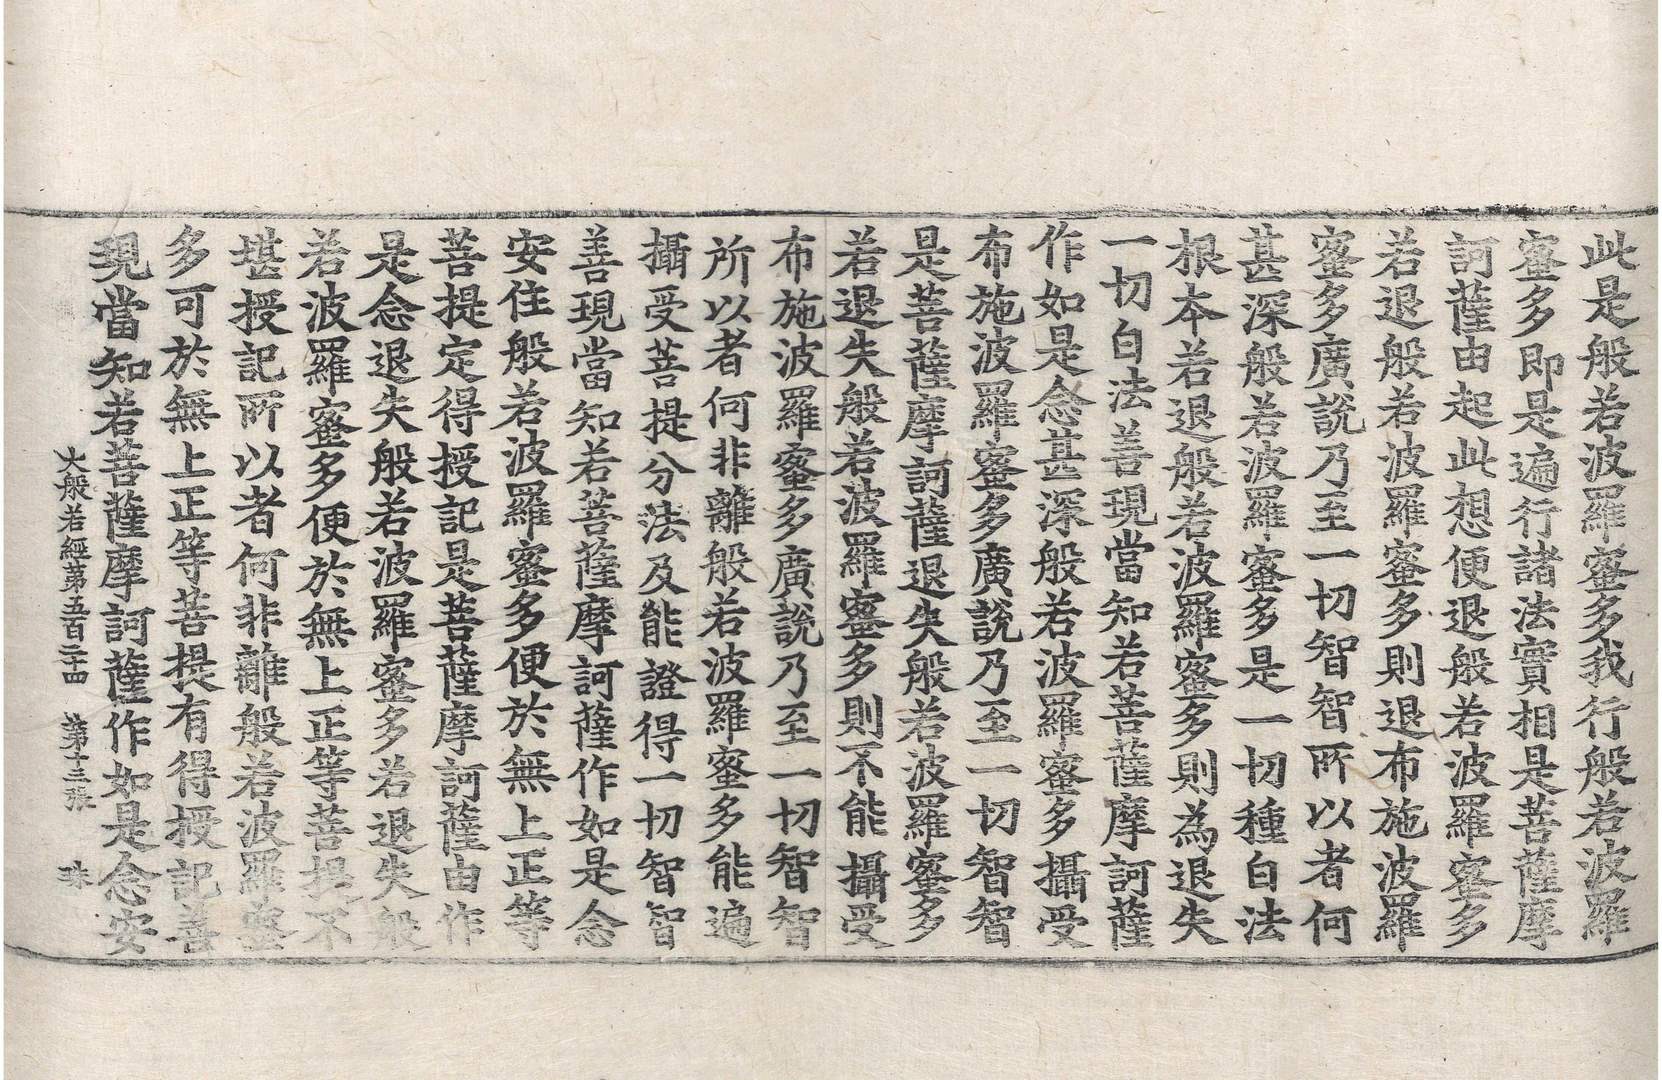 此是般若波羅蜜多我行般若波羅
蜜多即是遍行諸法實相是菩薩摩
訶薩由起此想便退般若波羅蜜多
若退般若波羅蜜多則退布施波羅
蜜多廣說乃至一切智智所以者何
甚深般若波羅蜜多是一切種白法
根本若退般若波羅蜜多則為退失
一切白法善現當知若菩薩摩訶薩
作如是念甚深般若波羅蜜多攝受
布施波羅蜜多廣說乃至一切智智
是菩薩摩訶薩退失般若波羅蜜多
若退失般若波羅蜜多則不能攝受
布施波羅蜜多廣說乃至一切智智
所以者何非離般若波羅蜜多能遍
攝受菩提分法及能證得一切智智
善現當知若菩薩摩訶薩作如是念
安住般若波羅蜜多便於無上正等
菩提定得授記是菩薩摩訶薩由作
是念退失般若波羅蜜多若退失般
若波羅蜜多便於無上正等菩提不
堪授記所以者何非離般若波羅蜜
多可於無上正等菩提有得授記善
現當知若菩薩摩訶薩作如是念安
大般若經第五百二十四 第十三張 珠